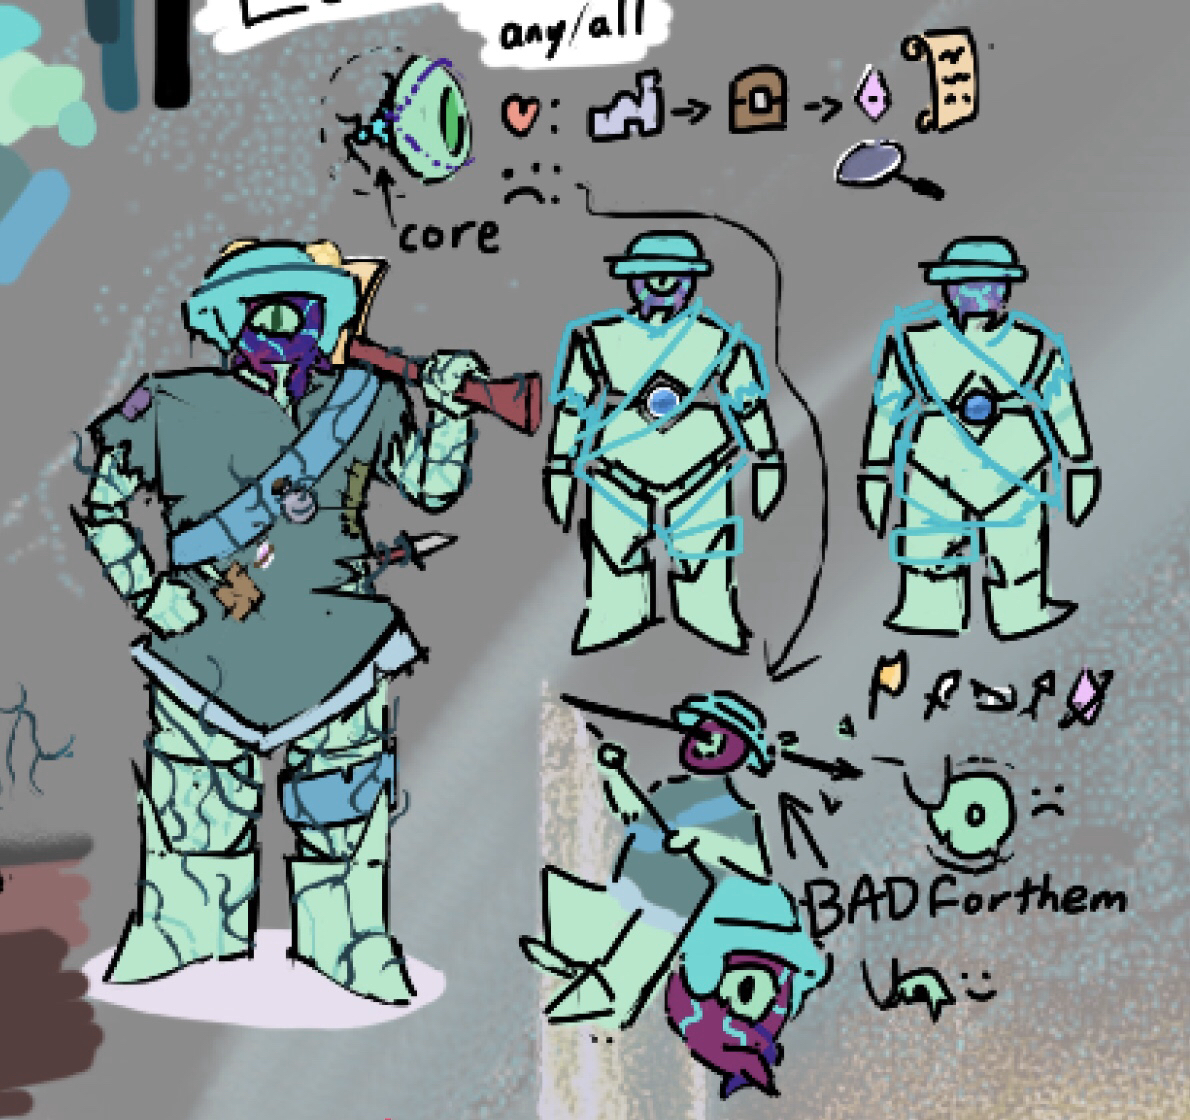 any/all
core
BAD for them